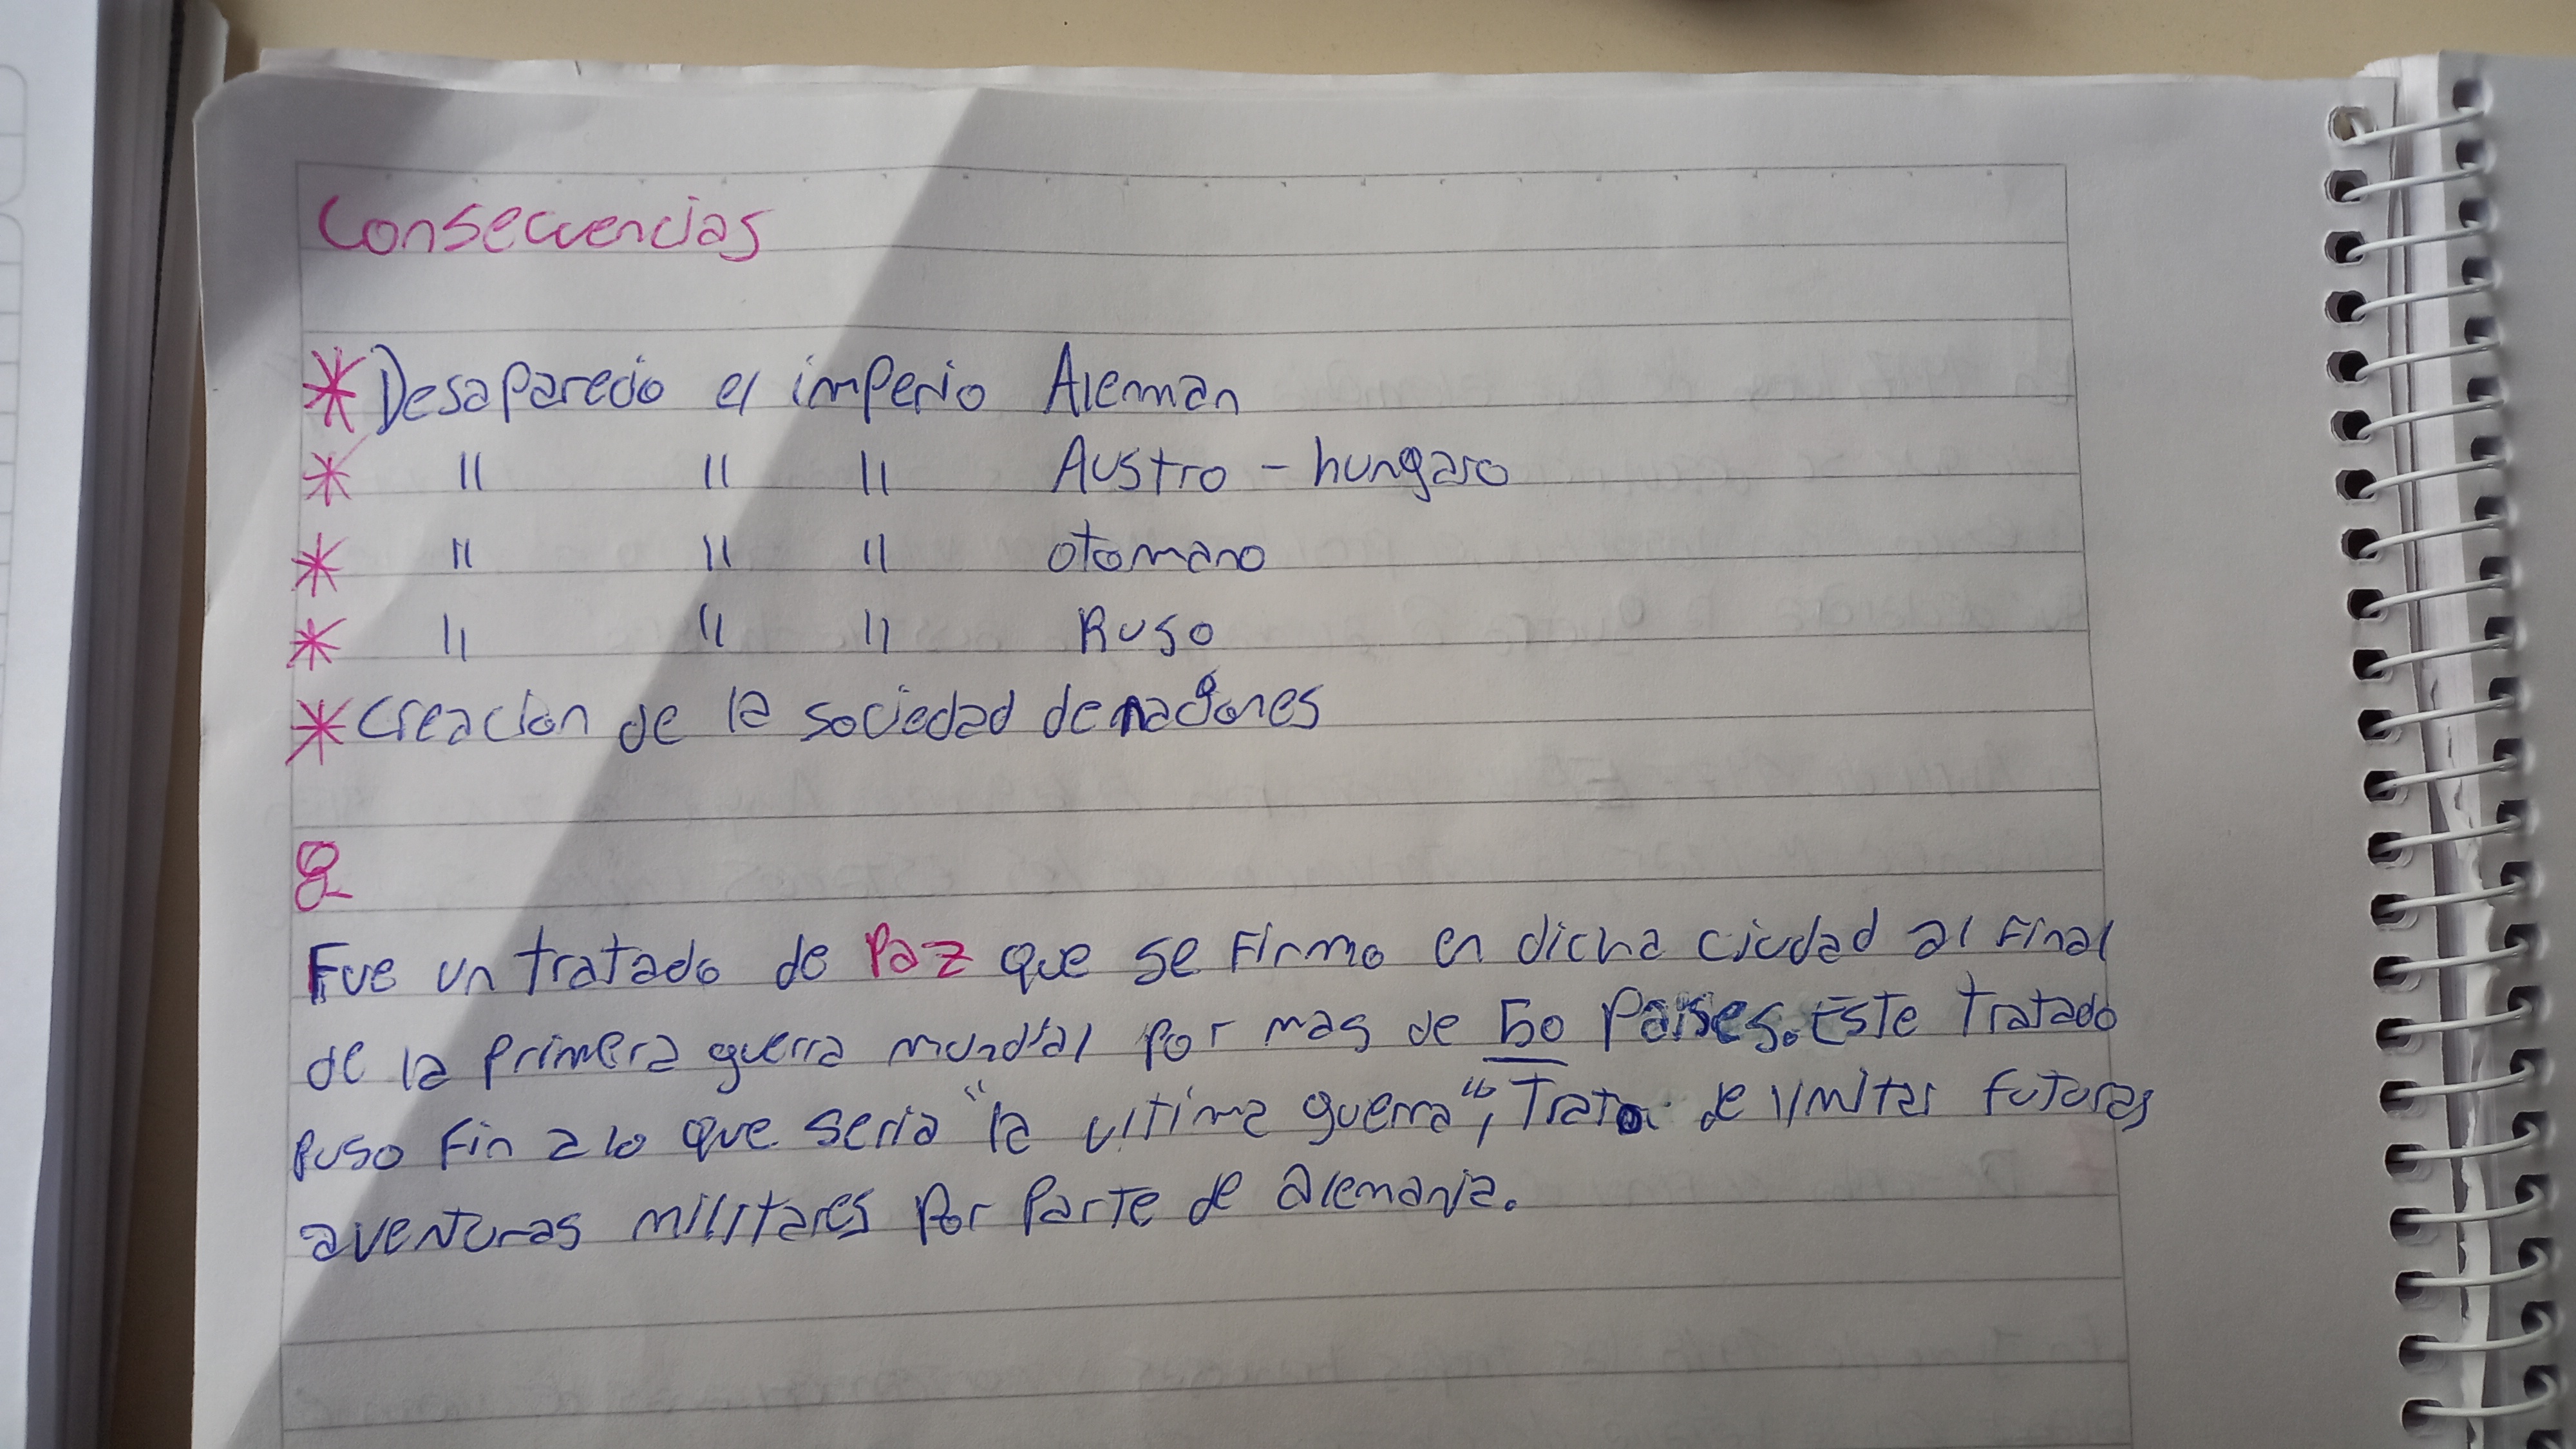 Consecuencias
* Desaparecio el imperio Aleman
* " " " Austro - hungaro
* " " " otomano
* " " " Ruso
* creacion de la sociedad de naciones
8-
Fue un tratado de Paz que se firmo en dicha ciudad al final
de la primera guerra mundial por mas de 50 Paises. Este tratado
puso fin a lo que seria "la ultima guerra", Trato de limitar futuras
aventuras militares por parte de alemania.